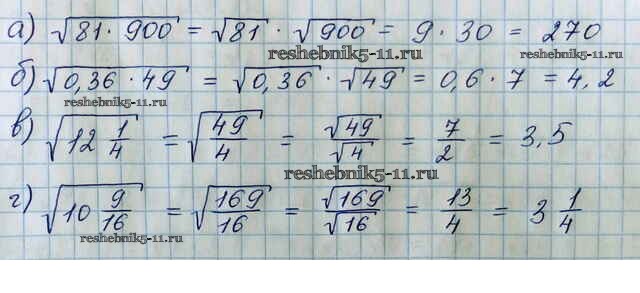 а) √81·900 = √81 · √900 = 9·30 = 270
reshebnik5-11.ru
б) √0,36·49 = √0,36 · √49 = 0,6·7 = 4,2
reshebnik5-11.ru
в) √12 1/4 = √49/4 = √49/√4 = 7/2 = 3,5
reshebnik5-11.ru
г) √10 9/16 = √169/16 = √169/√16 = 13/4 = 3 1/4
reshebnik5-11.ru